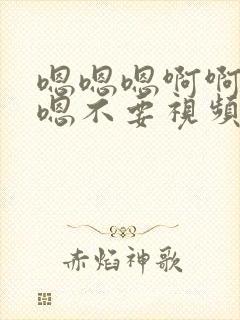 嗯嗯嗯啊啊
嗯不要視頻
赤焰神歌